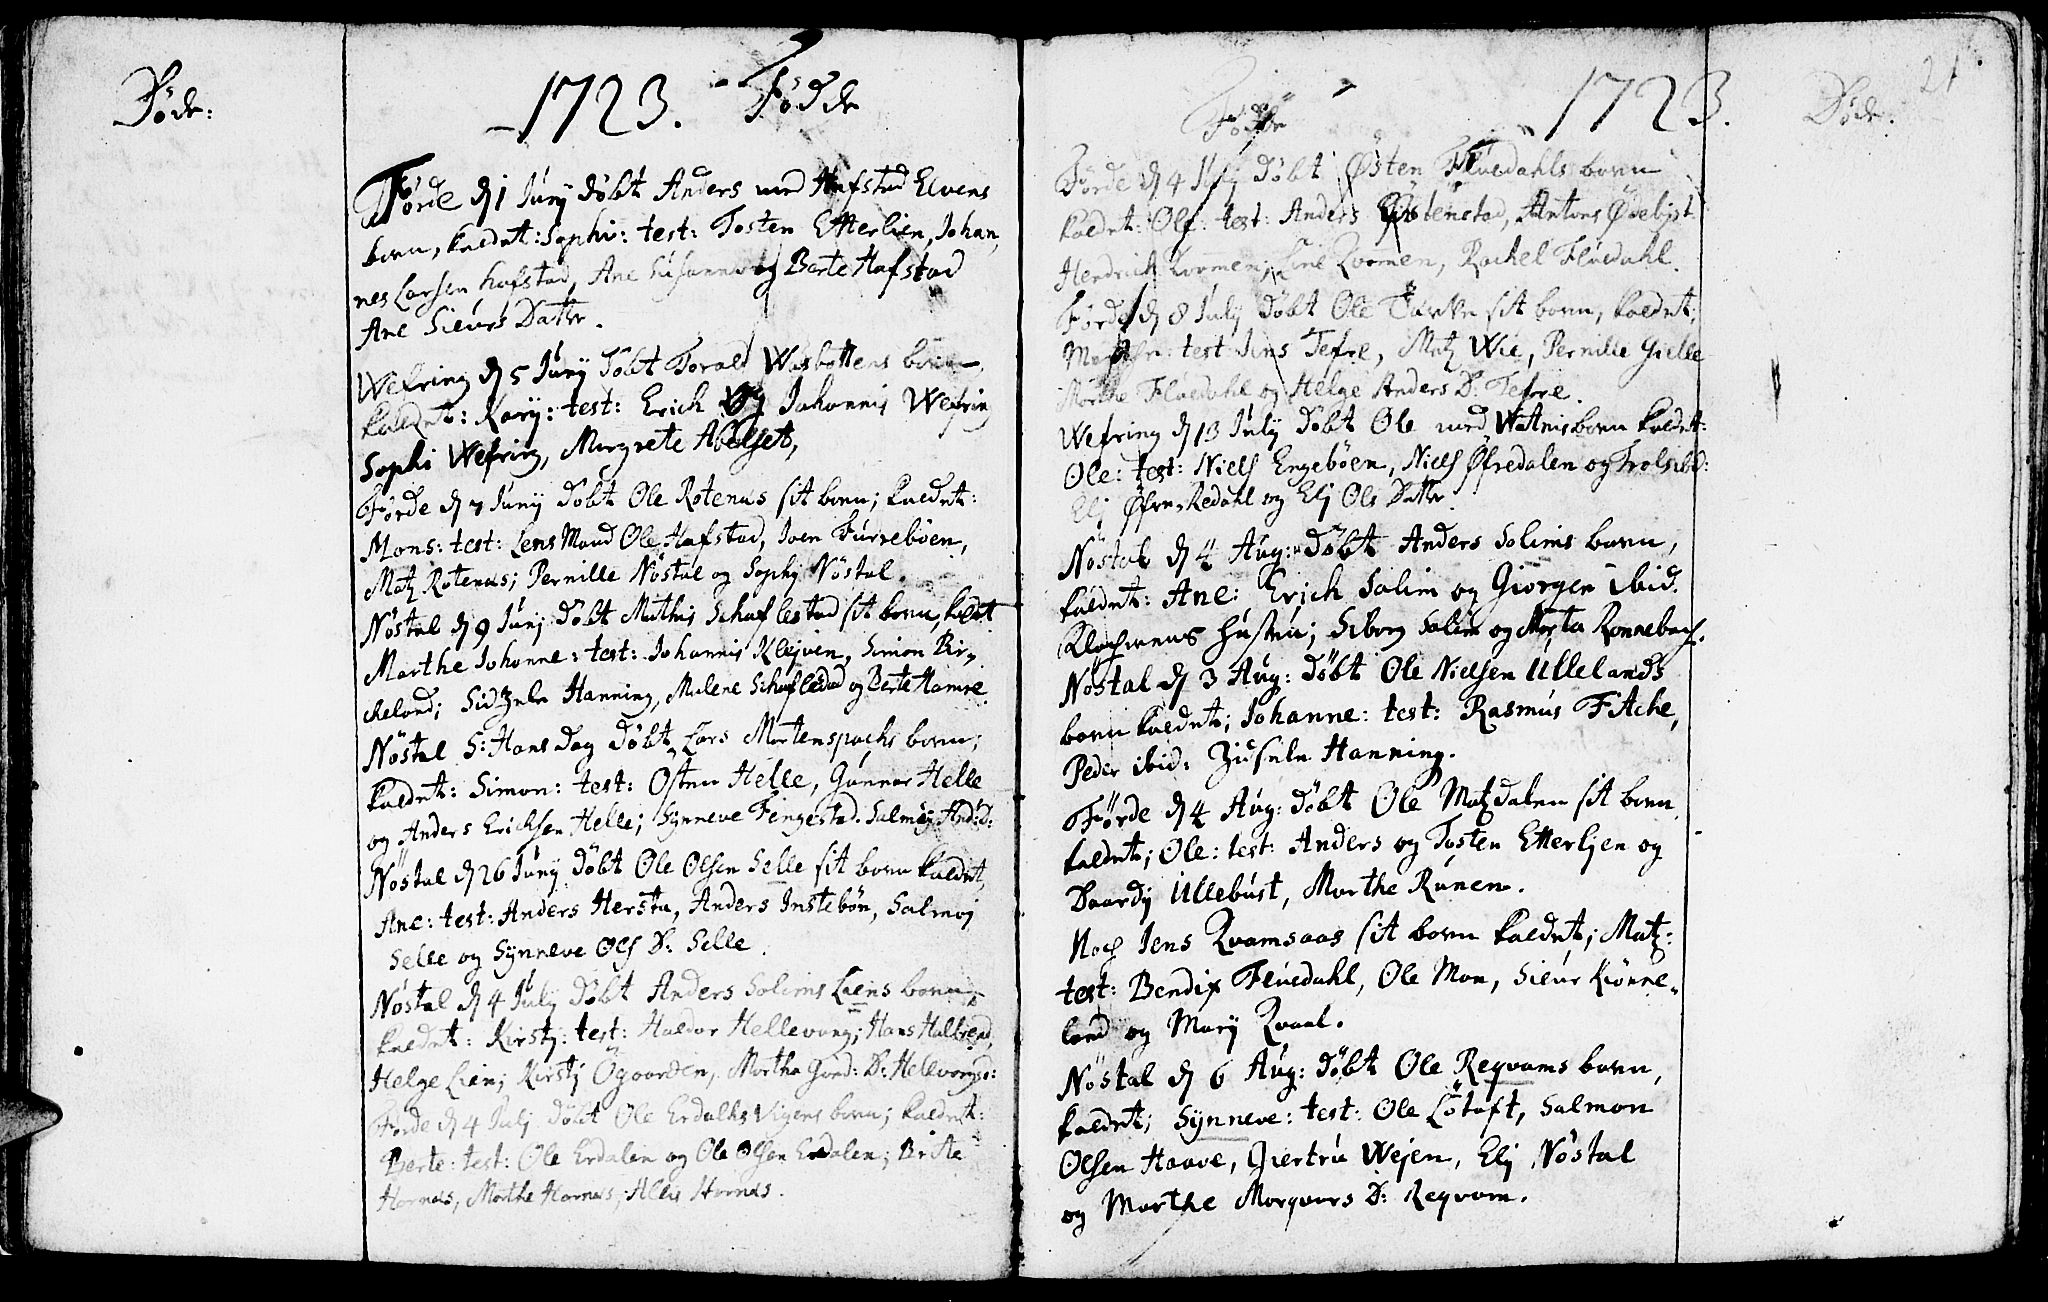 Døde:
1723. Fødde
Førde d 1 Junÿ døbt Anders ved Hafstad Elvens
born, kaldet: Sophi: test: Tosten Etterlien, Johan,
nes Larsen hafstad, Ane Susanna og Berte Hafstad
Ane Siurs Datter.
Wefring d 5 Junÿ døbt Torald Wasbottens born
kaldet: Karÿ: test: Erich og Johannis Wefring
Sophi Wefring, Margrete Abelset,
Førde d 7 Junÿ døbt Ole Rotenas sit born; kaldet:
Mons: test: Lens Mand Ole Hafstad, Joen Furrebøen,
Matz Rotenas; Pernille Nøstal og Sophj Nøstal.
Nøstal d 9 Junj døbt Mathis Schaflestad sit born, kaldt
Marthe Johanne: test: Johannis Klejven, Simon Bir,,
cheland; Sidzele Hanning, Malene Schaflestad og Berte Hamre.
Nøstal S: Hans dag døbt Lars Mortenspachs born;
kaldet: Simon: test: Østen Helle, Gunnar Helle
og Anders Erichsen Helle; Sÿnneve Fingestad. Salmoj And: D:
Nøstal d 26 Junÿ døbt Ole Olsen Selle sit born kaldet,
Ane: test: Anders Hersta, Anders Instebøn, Salmoj
Selle og Sÿnneve Ols D: Selle.
Nøstal d 4 Julÿ døbt Anders Solims Liens born,
kaldet: Kirstj: test: Haldor Hellevang; Hans
Helge Lien; Kirstj Øgaarden, Marthe Gord: D: Hellevangs:
Førde d 4 Julj døbt Ole Erdals Vigens born; kaldet:
Berte: test: Ole Erdalen og Ole Olsen Erdalen; Britte
Hornæs, Marthe Hornæs, Hornæs.
21
Fødde
1723.
Døde:
Førde d 4 Julÿ døbt Østen Fluedahls born
kaldet: Ole: test: Anders Østenstad, Antons
Hendrich Kvamen, Kvamen, Rachel Fluedahl.
Førde d 8 Julÿ døbt Ole sit born, kaldet;
test: Jens Tefre, Matz Wie, Pernille Gielle
Marthe Fluedahl og Helge Anders D: Tefre.
Wefring d 13 Julÿ døbt Ole ved Watnis born kaldet:
Ole: test: Niels Engebøen, Niels Øfredalen og ibid:
Elj Øfredahl og Elj Ols Datter.
Nøstal d 4 Aug: døbt Anders Solims born,
kaldet: Ane: Erich Solim og Giørgen ibid.
Klochrens hustru; Siborg Solim og Marta Ronnebach.
Nøstal d 3 Aug: døbt Ole Nielsen Ullelands
born kaldet; Johanne: test: Rasmus Fitche,
Peder ibid: Zidsele Hanning.
Førde d 4 Aug: døbt Ole Matzdalen sit born
kaldet; Ole: test: Anders og Tosten Etterljen og
Baardj Ullebust, Marthe Runen.
Noch Jens Kvamsaas sit born kaldet; Matz:
test: Bendix Fluedahl, Ole Mon, Siur Kiønne,,
land og Marÿ Kvaal.
Nøstal d 6 Aug: døbt Ole Reqvams born,
kaldet; Sÿnneve: test: Ole Løtuft, Salmon
Olsen Haave, Giertru Wejen, Elj Nøstal
og Marthe Morqvars D: Reqvam.